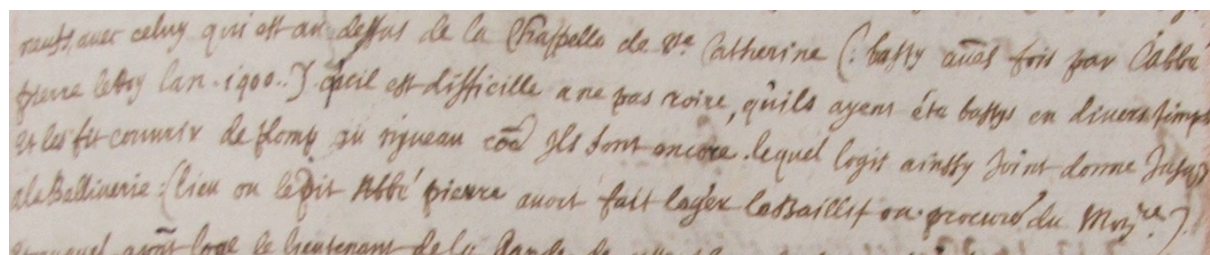 avec celuy qui est au dessus de la Chappelle de Ste Catherine (: basty aũes fois par L'abbé
pierre leRoy lan .1400..) qu'il est difficille a ne pas croire, qu'ils ayent été bastys en divers temps
et les fit couvrir de plomp au nyveau cõe Ils sont encore. lequel logis ainssy Joint donne Jusqs
a la Balliverie :( lieu ou ledit Abbé pierre avoit fait loger le Baillif ou procureur du Monre.).
le lieutenant de la